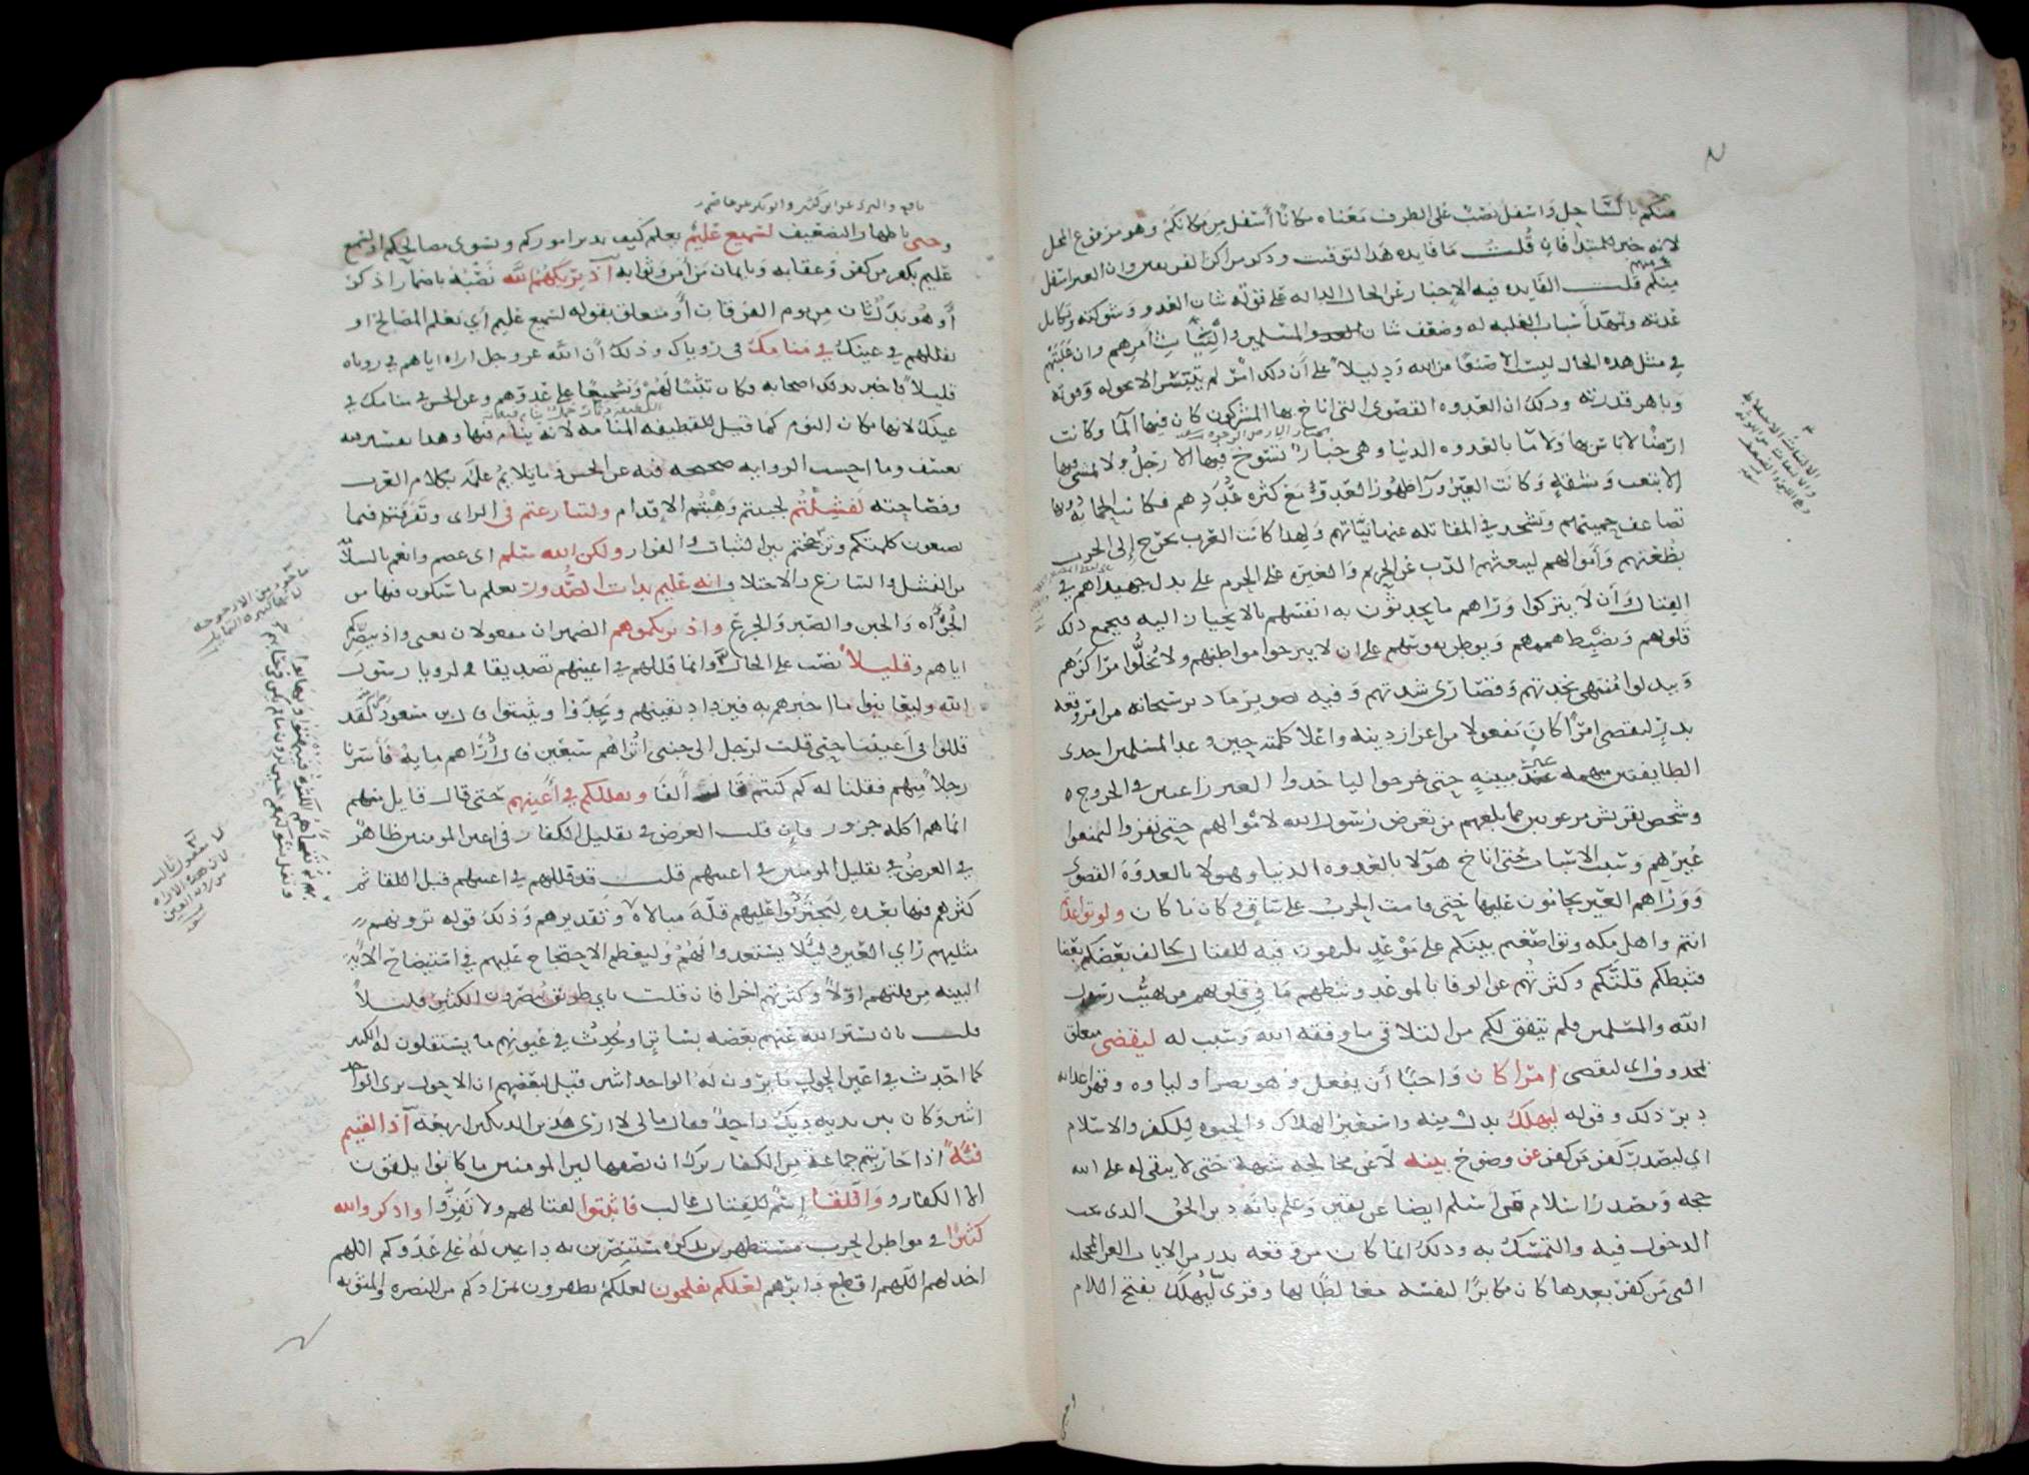 منكم بالساحل واسفل نصب على الظرف معناه مكانا أسفل من مكانكم وهو مرفوع المحل
لانه خبر للمبتدا فان قلت ما فايده هذا التوقيت وذكر مراكز الفريقين وان العير اسفل
منكم قلت الفايده فيه الاخبار عن الحال الداله على قوة شان العدو وشوكته وتكامل
عدته وتمهد أسباب الغلبه له وضعف شان المسلمين والتياث أمرهم وان غلبتهم
في مثل هذه الحال ليست الا صنعا من الله ودليلا على أن ذلك امر لم يتيسر الا بحوله وقوته
وباهر قدرته وذلك ان العدوه القصوى التي اناخ بها المشركون كان فيها الما وكانت
ارضا لا باس بها ولا ما بالعدوه الدنيا وهي خبار تسوخ فيها الارجل ولا يمشى فيها
الا بتعب ومشقه وكانت العير ورآ ظهور العدو مع كثره عددهم فكانت الحمايه دونها
تضاعف حميتهم وتشحذ في المقاتله عنها نياتهم ولهذا كانت العرب تخرج إلى الحرب
بظعنهم وأموالهم ليبعثهم الذب عن الحريم والغيره على الحرم على بذل جهيداهم في
القتال وأن لا يتركوا وراهم ما يحدثون به انفسهم بالانحياز اليه فيجمع ذلك
قلوبهم ويضبط هممهم ويوطن نفوسهم على ان لا يبرحوا مواطنهم ولا يخلوا مراكزهم
ويبذلوا منتهى نجدتهم وقصارى شدتهم وفيه تصوير ما دبر سبحانه من امر وقعه
بدر ليقضى امرا كان مفعولا من اعزاز دينه واعلا كلمته حين وعد المسلمين احدى
الطايفتين مبهمه غير مبينه حتى خرجوا لياخذوا العير راغبين في الخروج
وشخص بقريش مرعوبين مما بلغهم من تعرض رسول الله لاموالهم حتى نفروا ليمنعوا
عيرهم وسبب الاسباب حتى اناخ هولا بالعدوه الدنيا وهولا بالعدوه القصوى
ووراهم العير يحامون عليها حتى قامت الحرب على ساق وكان ما كان ولو تواعدتم
انتم واهل مكه وتواضعتم بينكم على موعد تلتقون فيه للقتال لخالف بعضكم بعضا
فثبطكم قلتكم وكثرتهم عن الوفا بالموعد وثبطهم ما في قلوبهم من تهيب رسول
الله والمسلمين فلم يتفق لكم من التلاقي ما وفقه الله وسبب له ليقضي متعلق
بمحذوف اى ليقضى امرا كان واجبا أن يفعل وهو نصر اوليايه وقهر اعدايه
دبر ذلك وقوله ليهلك بدل منه واستعير الهلاك والحيوه للكفر والاسلام
اى ليصدر كفر من كفر عن وضوح بينه لا عن مخالجه شبهة حتى لا يبقى له على الله
حجه ويصدر اسلام من اسلم ايضا عن يقين وعلم بانه دين الحق الذى يجب
الدخول فيه والتمسك به وذلك انما كان من وقعه بدر من الايات الغر المحجله
التى من كفر بعدها كان مكابرا لنفسه مغالطا لها وقرى ليهلك بفتح اللام
نافع والبزى عن ابن كثير وابو بكر عن عاصم
وحيى باظهار التضعيف لسميع عليم يعلم كيف يدبر اموركم ويسوى مصالحكم او لسميع
عليم بكفر من كفر وعقابه وبايمان من آمن وثوابه اذ يريكهم الله نصبه باضمار اذكر
أو هو بدل ثان من يوم الفرقان أو متعلق بقوله لسميع عليم أي يعلم المصالح اذ
يقللهم في عينك في منامك في روياك وذلك أن الله عز وجل اراه اياهم في روياه
قليلا فاخبر بذلك اصحابه فكان تثبيتا لهم وتشجيعا على عدوهم وعن الحسن في منامك في
عينك لانها مكان النوم كما قيل للقطيفه المنامه لانه ينام فيها وهذا تفسير فيه
تعسف وما احسب الروايه صحيحه فيه عن الحسن وما يلايم علمه بكلام العرب
وفصاحته لفشلتم لجبنتم وهبتم الاقدام ولتنازعتم في الراى وتفرقت فيما
تصنعون كلمتكم وترجحتم بين الثبات والفرار ولكن الله سلم اى عصم وانعم بالسلامه
من الفشل والتنازع والاختلاف انه عليم بذات الصدور يعلم ما سيكون فيها من
الجراه والجبن والصبر والجزع واذ يريكموهم الضميران مفعولان يعنى واذ يبصركم
اياهم وقليلا نصب على الحال وانما قللهم في اعينهم تصديقا لرويا رسول
الله وليعاينوا ما اخبرهم به فيزداد يقينهم ويجدوا ويثبتوا قال ابن مسعود لقد
قللوا في أعيننا حتى قلت لرجل الى جنبى اتراهم سبعين قال أراهم مايه فأسرنا
رجلا منهم فقلنا له كم كنتم قال ألفا ويقللكم في أعينهم حتى قال قايل منهم
انما هم اكله جزور فإن قلت الغرض في تقليل الكفار في اعين المومنين ظاهر
فما الغرض في تقليل المومنين في اعينهم قلت قد قللهم في اعينهم قبل اللقا ثم
كثرهم فيها بعده ليجترئوا عليهم قلة مبالاه وتقديرهم وذلك قوله ترونهم
مثليهم راي العين وليلا يستعدوا لهم وليعظم الاحتجاج عليهم في استيضاح الآية
البينه من قلتهم اولا وكثرتهم اخرا فان قلت باي طريق يبصرون الكثير قليلا
قلت بان يستر الله عنهم بعضه بساتر او يحدث في عيونهم ما يستقلون له الكثير
كما احدث في اعين الحول ما يرون له الواحد اثنين قيل لبعضهم ان الاحول يرى الواحد
اثنين وكان بين يديه ديك واحد فقال مالى لا ارى هذين الديكين اربعة اذا لقيتم
فئة اذا حاربتم جماعة من الكفار ترك ان يصفها لان المومنين ما كانوا يلقون
الا الكفار واللقا اسم للقتال غالب فاثبتوا لقتالهم ولا تفروا واذكروا الله
كثيرا في مواطن الحرب مستظهرين بذكره مستنصرين به داعين له على عدوكم اللهم
اخذلهم اللهم اقطع دابرهم لعلكم تفلحون لعلكم تظفرون بمرادكم من النصره والمثوبه